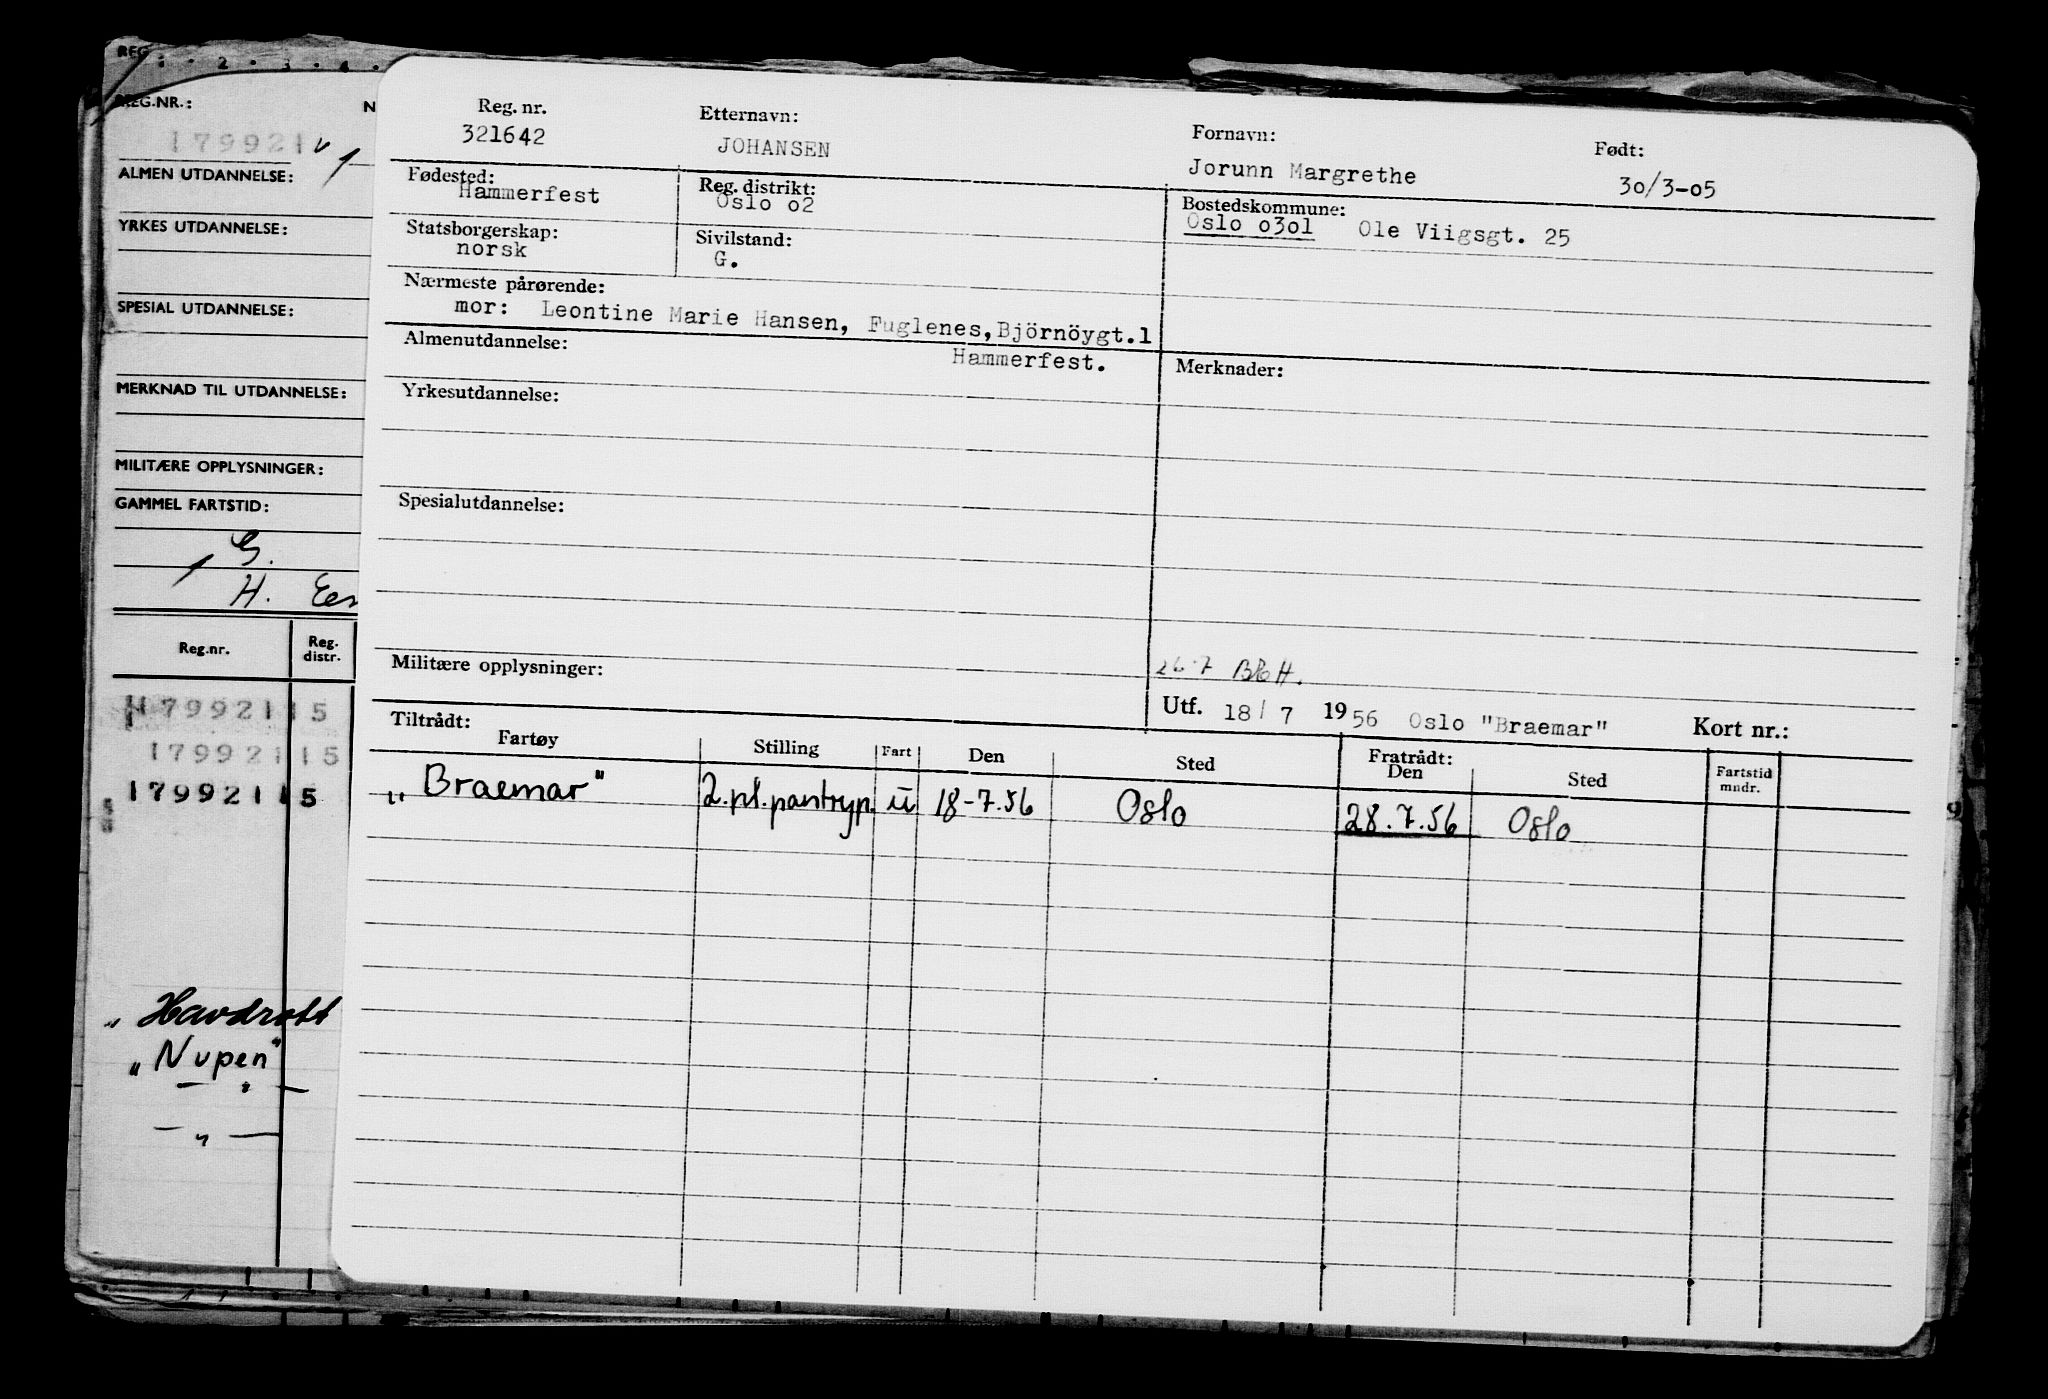 REG.
1 · 2 · 3 · 4 ·
REG.NR.: N
179921 v
ALMEN UTDANNELSE:
YRKES UTDANNELSE:
SPESIAL UTDANNELSE:
MERKNAD TIL UTDANNELSE:
MILITÆRE OPPLYSNINGER:
GAMMEL FARTSTID:
G.
H.
Reg.nr. Reg. distr.
179921 15
179921 15
179921 15
„ Havdrott
„Nupen"
— " —
— " —
Reg. nr. Etternavn: Fornavn: Født:
321642 JOHANSEN Jorunn Margrethe 30/3-05
Fødested: Reg. distrikt: Bostedskommune:
Hammerfest Oslo o2 Oslo o3o1 Ole Viigsgt. 25
Statsborgerskap: Sivilstand:
norsk G.
Nærmeste pårørende:
mor: Leontine Marie Hansen, Fuglenes,Björnöygt.1
Hammerfest.
Almenutdannelse: Merknader:
Yrkesutdannelse:
Spesialutdannelse:
Militære opplysninger: 26.7
Utf. 18/ 7 1956 Oslo "Braemar" Kort nr.:
Tiltrådt: Fratrådt:
Fartøy Stilling Fart Den Sted Den Sted Fartstid mndr.
„Braemar" 2.pl.pantryp. u 18-7.56 Oslo 28.7.56 Oslo